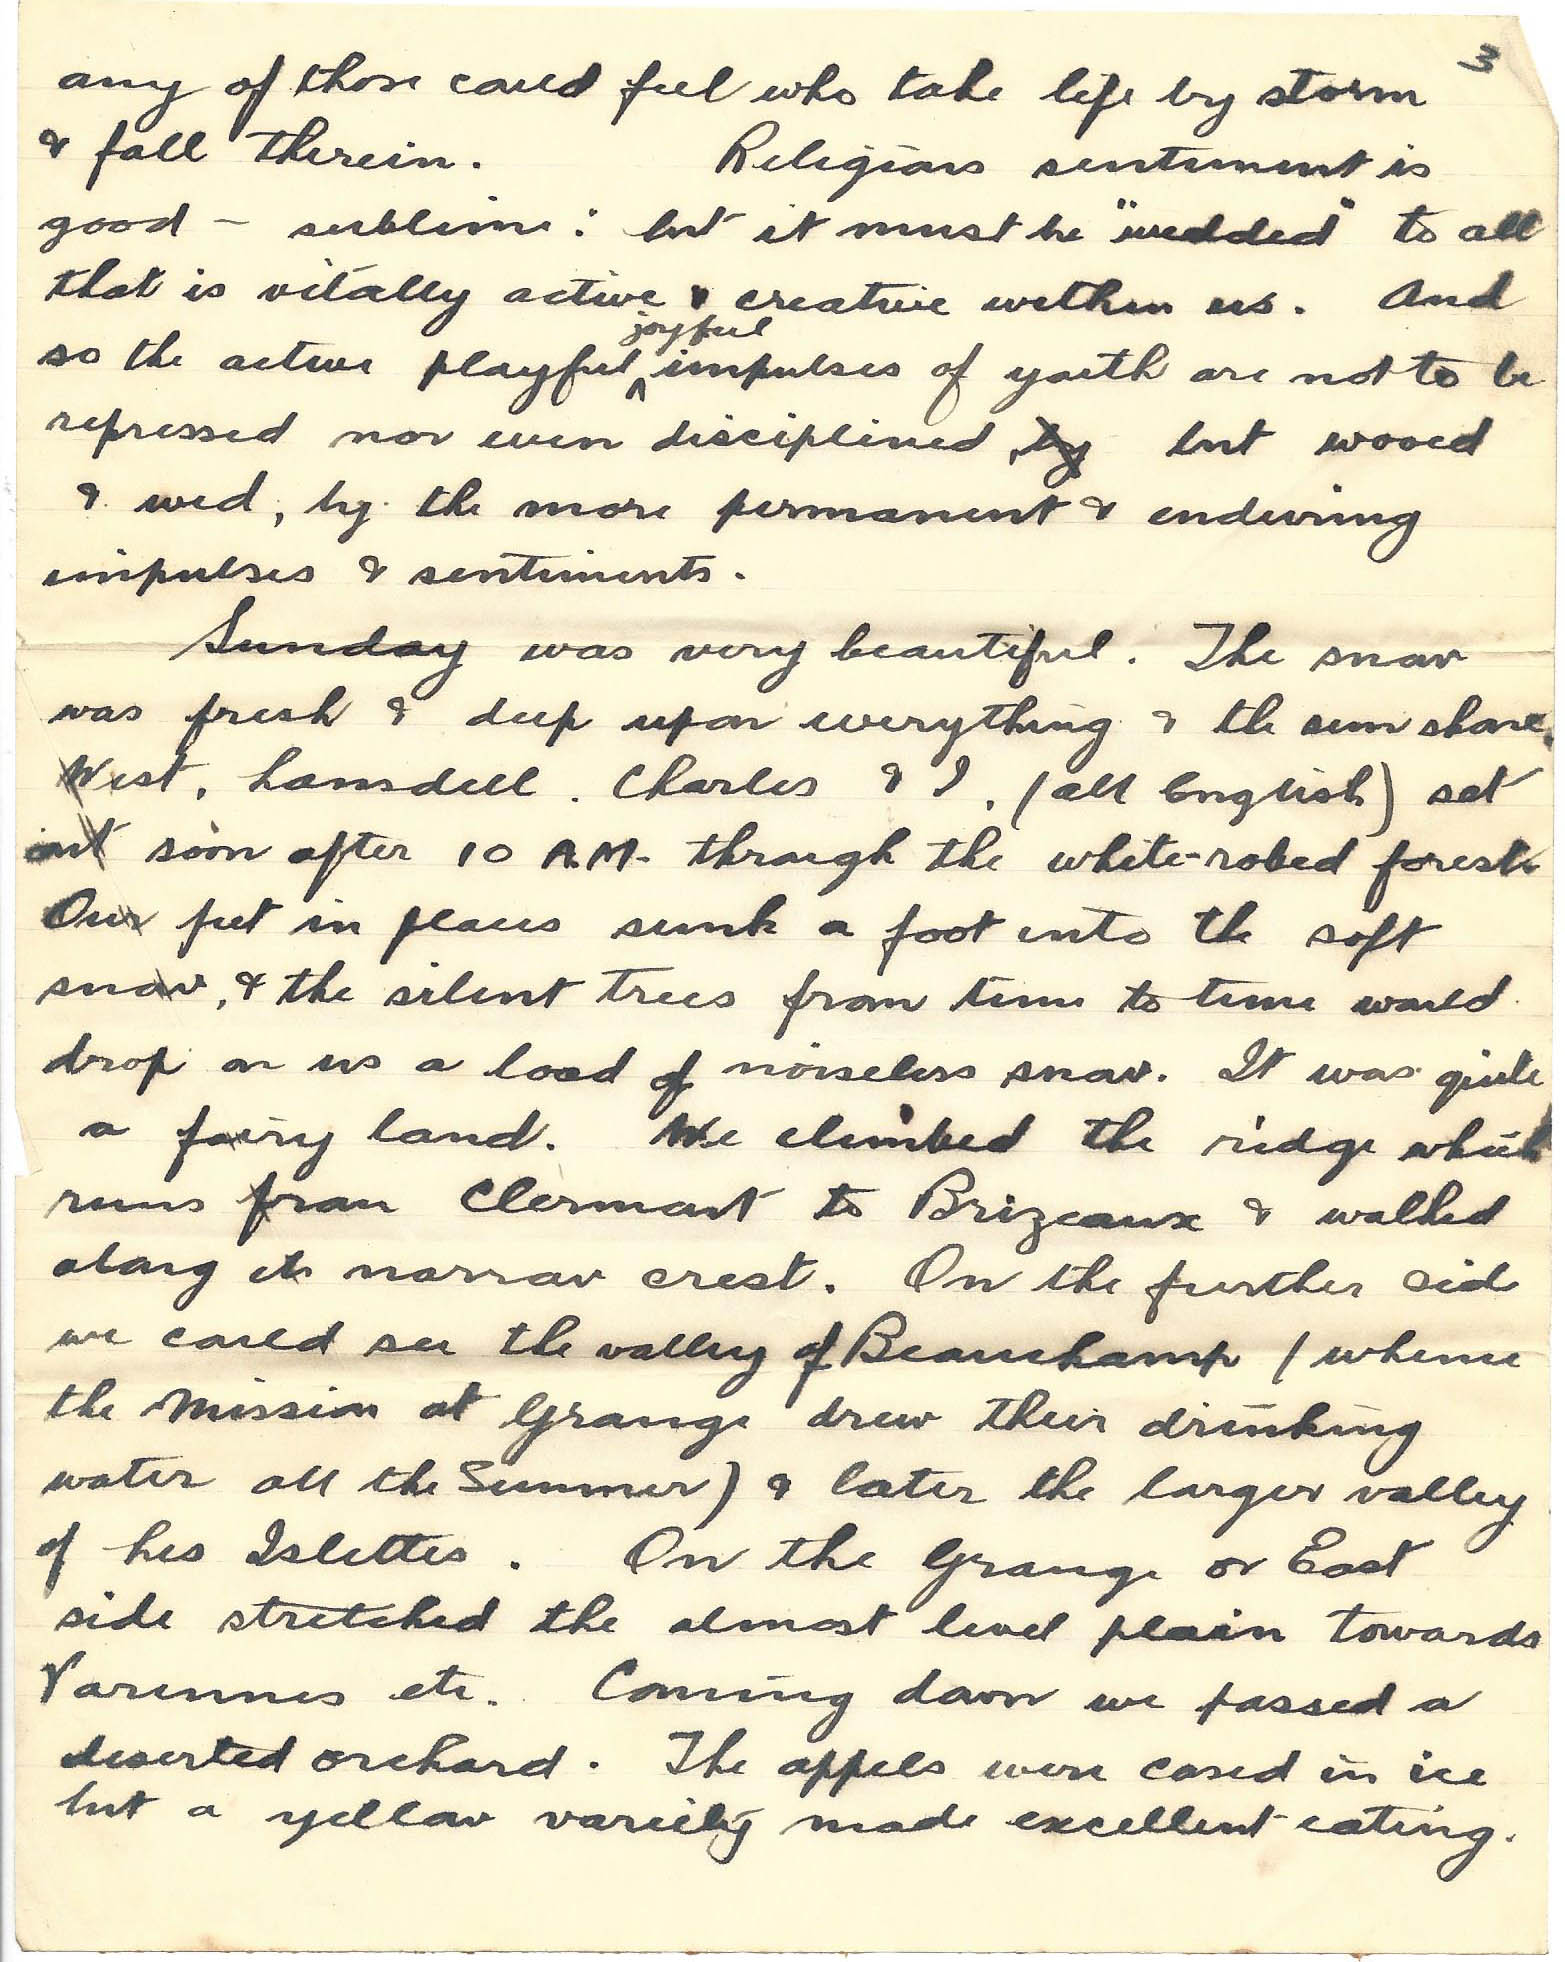 3
any of those could feel who take life by storm
& fall therein. Religious sentiment is
good - sublime: but it must be "wedded" to all
that is vitally active & creative within us. And
so the active playful joyful impulses of youth are not to be
repressed nor even disciplined, by but wooed
& wed, by the more permanent & enduring
impulses & sentiments.
Sunday was very beautiful. The snow
was fresh & deep upon everything & the sun shone.
West, Lansdell. Charles & I, (all English) set
out soon after 10 A.M. through the white-robed forest.
Our feet in places sunk a foot into the soft
snow, & the silent trees from time to time would
drop on us a load of noiseless snow. It was quite
a fairy land. We climbed the ridge which
runs from Clermont to Brizeaux & walked
along its narrow crest. On the further side
we could see the valley of Beauchamp (whence
the Mission at Grange drew their drinking
water all the Summer) & later the larger valley
of les Islettes. On the Grange or East
side stretched the almost level plain towards
Varennes etc. Coming down we passed a
deserted orchard. The appels were cased in ice
but a yellow variety made excellent eating.